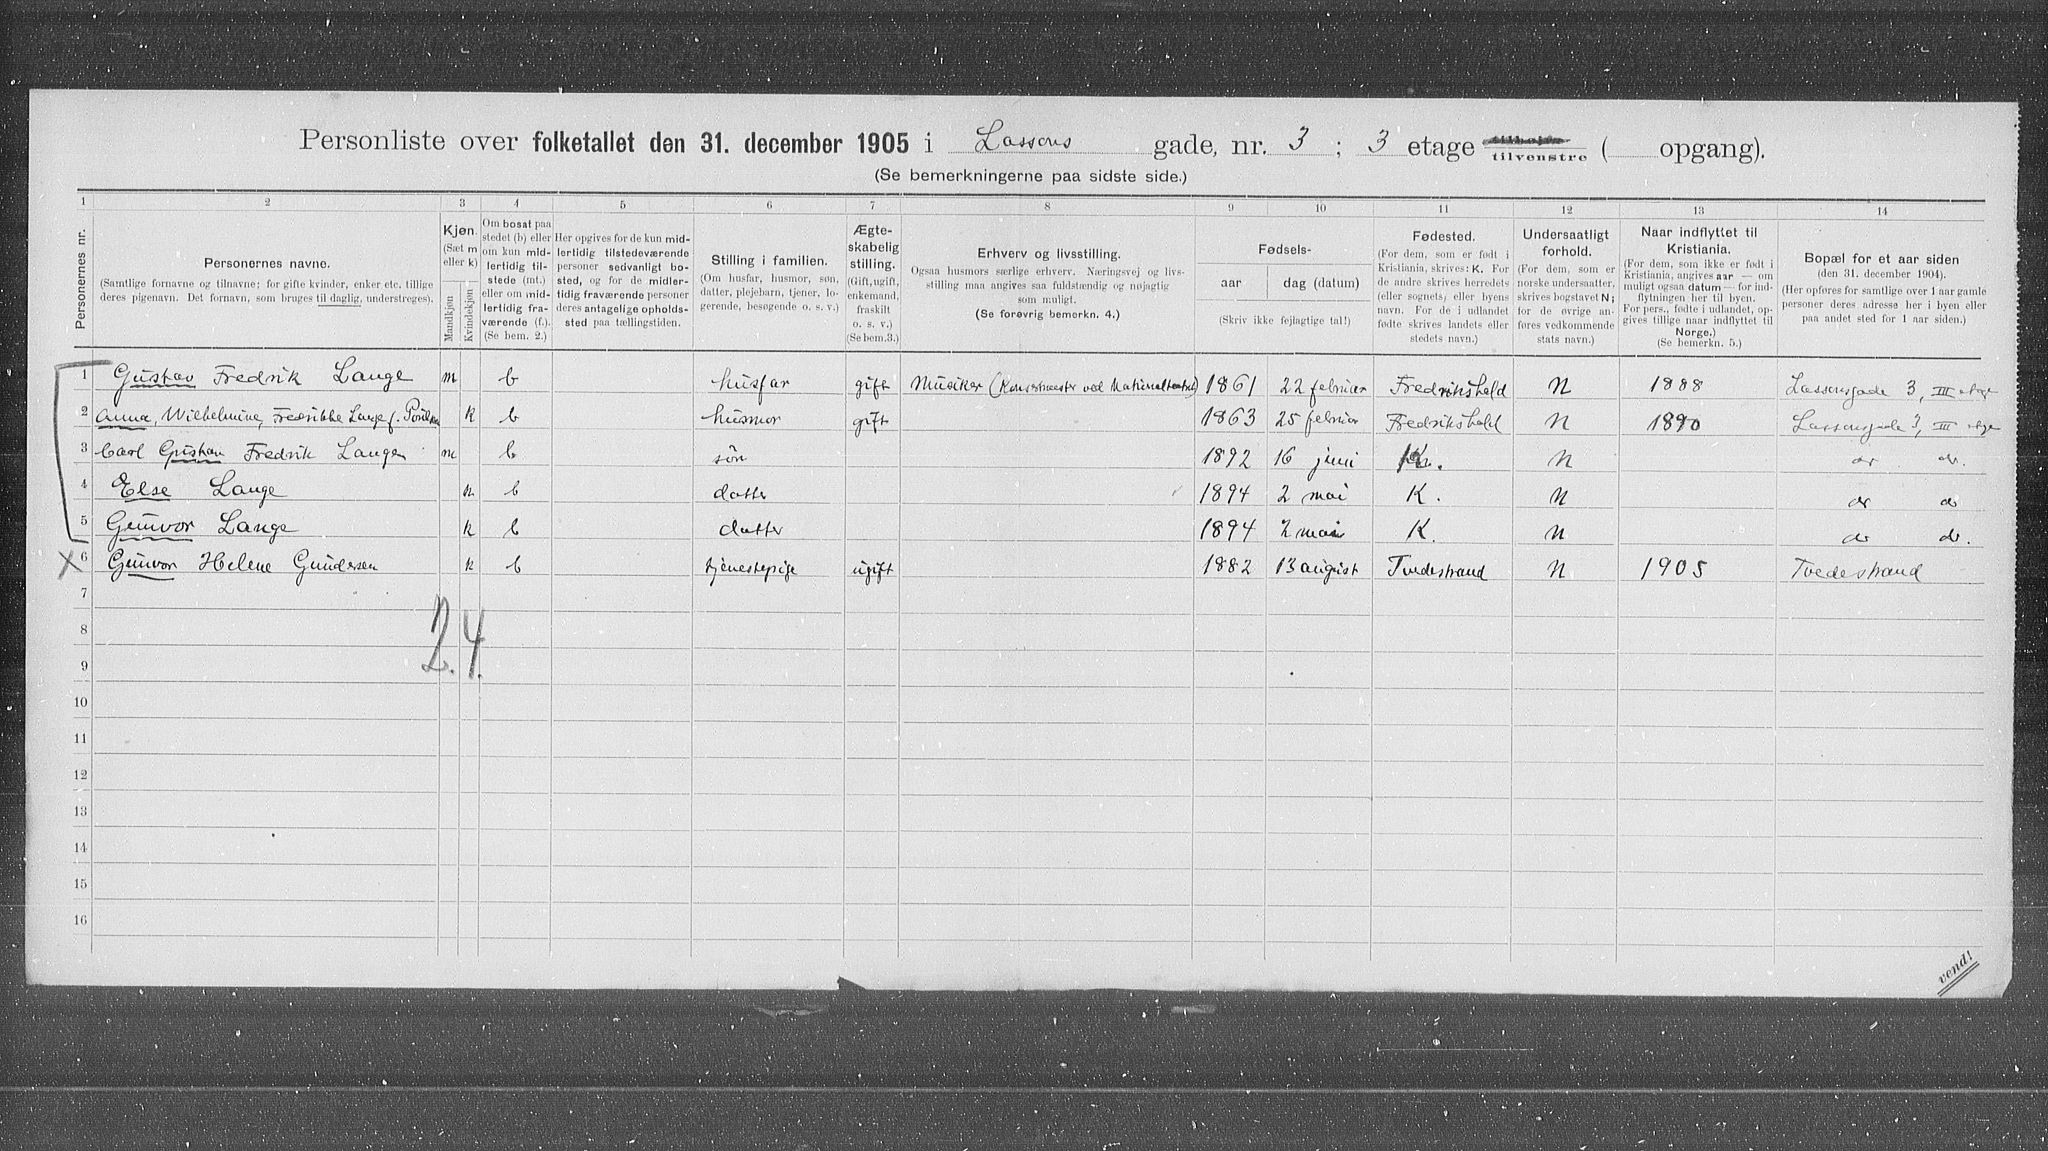 Personliste over folketallet den 31. december 1905 i Lassons gade, nr. 3 ; 3 etage tilhøire tilvenstre ( opgang).
(Se bemerkningerne paa sidste side.)
1 2 3 4 5 6 7 8 9 10 11 12 13 14
Personernes nr.
Personernes navne.
(Samtlige fornavne og tilnavne; for gifte kvinder, enker etc. tillige
deres pigenavn. Det fornavn, som bruges til daglig, understreges).
Kjøn.
(Sæt m
eller k)
Mandkjøn
Kvindekjøn
Om bosat paa
stedet (b) eller
om kun mid-
lertidig til-
stede (mt.)
eller om mid-
lertidig fra-
værende (f.).
(Se bem. 2.)
Her opgives for de kun mid-
lertidig tilstedeværende
personer sedvanligt bo-
sted, og for de midler-
tidig fraværende personer
deres antagelige opholds-
sted paa tællingstiden.
Stilling i familien.
(Om husfar, husmor, søn,
datter, plejebarn, tjener, lo-
gerende, besøgende o. s. v.)
Ægte-
skabelig
stilling.
(Gift, ugift,
enkemand,
fraskilt
o. s. v.)
(Se bem.3.)
Erhverv og livsstilling.
Ogsaa husmors særlige erhverv. Næringsvej og livs-
stilling maa angives saa fuldstændig og nøjagtig
som muligt.
(Se forøvrig bemerkn. 4.)
Fødsels-
aar dag (datum)
(Skriv ikke fejlagtige tal!)
Fødested.
(For dem, som er født i
Kristiania, skrives: K. For
de andre skrives herredets
(eller sognets) eller byens
navn. For de i udlandet
fødte skrives landets eller
stedets navn.)
Undersaatligt
forhold.
(For dem, som er
norske undersaatter,
skrives bogstavet N;
for de øvrige an-
føres vedkommende
stats navn.)
Naar indflyttet til
Kristiania.
(For dem, som ikke er født i
Kristiania, angives aar — om
muligt ogsaa datum — for ind-
flytningen her til byen.
For pers., fødte i udlandet, op-
gives tillige naar indflyttet til
Norge.)
(Se bemerkn. 5.)
Bopæl for et aar siden
(den 31. december 1904).
(Her opføres for samtlige over 1 aar gamle
personer deres adresse her i byen eller
paa andet sted for 1 aar siden.)
1 Gustav Fredrik Lange m b husfar gift Musiker (Konsertmester ved Nationaltheatret) 1861 22 februar Fredrikshald N 1888 Lassonsgade 3, III etage
2 Anna, Wilhelmine, Fredrikke Lange f. k b husmor gift 1863 25 februar Fredrikshald N 1890 Lassonsgade 3, III etge
3 Carl Gustav Fredrik Lange m b søn 1892 16 juni K. N do do.
4 Else Lange k b datter 1894 2 mai K. N do do
5 Gunvor Lange k b datter 1894 2 mai K. N do do.
6 Gunvor Helene Gundersen k b tjenestepige ugift 1882 13 august Tvedestrand N 1905 Tvedestrand
7
2. 4.
8
9
10
11
12
13
14
15
16
vend!